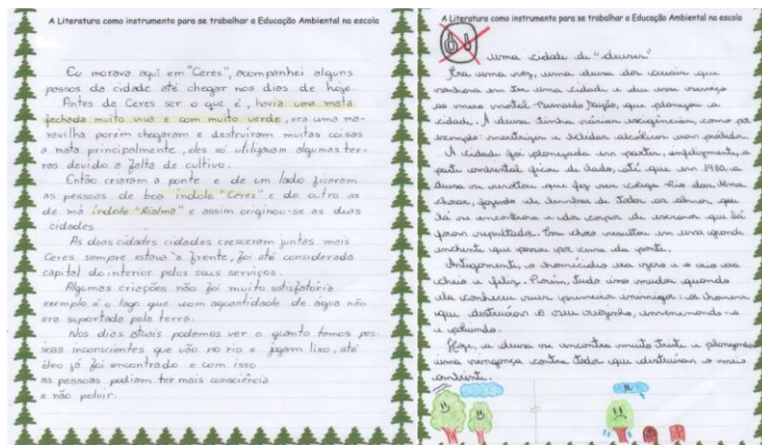 A Literatura como instrumento para se trabalhar a Educação Ambiental na escola
Eu morava aqui em "Ceres", acompanhei alguns
passos da cidade até chegar nos dias de hoje.
Antes de Ceres ser o que é, havia uma mata
fechada muito viva e com muito verde, era uma ma-
ravilha porém chegaram e destruíram muitas coisas
a mata principalmente, eles só utilizavam algumas ter-
ras devido a falta de cultivo.
Então criaram a ponte e de um lado ficaram
as pessoas de boa índole "Ceres" e do outro as
de má índole "Rialma" e assim originou-se as duas
cidades.
As duas cidades cidades cresceram juntas mais
Ceres sempre estava a frente, foi até considerada
capital do interior pelos seus serviços.
Algumas criações não foi muito satisfatória
exemplo é o lago que com a quantidade de água não
era suportado pela terra.
Nos dias atuais podemos ver o quanto temos pes-
soas inconscientes que vão no rio e jogam lixo, até
óleo já foi encontrado e com isso
as pessoas podiam ter mais consciência
e não poluir.
A Literatura como instrumento para se trabalhar a Educação Ambiental na escola
Uma cidade de "deuses"
Era uma vez, uma deusa dos cereais que
sonhava em ter uma cidade e deu esse serviço
ao mero mortal Bernardo Sayão, que planejou a
cidade. A deusa tinha várias exigências, como por
exemplo: meretrizes e bebidas alcólicas eram proibidas.
A cidade foi planejada em partes, infelizmente, a
parte ambiental ficou de lado, até que em 1980, a
deusa se revoltou que fez seu colega Rio das Almas
chorar, fazendo ele lembrar de todas as almas, que
lá se encontrava e dos corpos de escravos que lá
foram sepultados. Seu choro resultou em uma grande
enchente que passou por cima da ponte.
Antigamente, o homicídio era zero e o rio era
cheio e feliz. Porém, tudo isso mudou quando
ela conheceu seus primeiros inimigos: os homens
que destruíram o seu riozinho, envenenando-o
e poluindo.
Hoje, a deusa se encontra muito triste e planejando
uma vingança contra todos que destruíram o meio
ambiente.